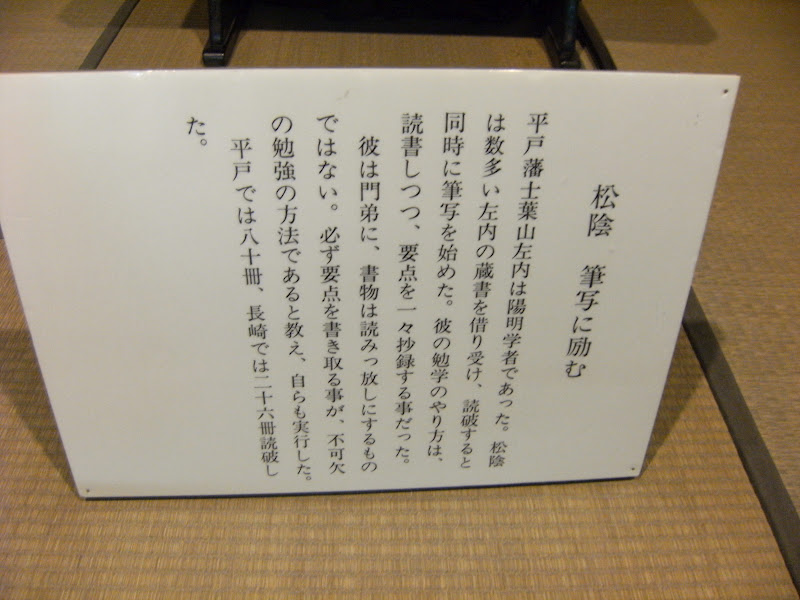 松陰　筆写に励む
平戸藩士葉山左内は陽明学者であった。松陰
は数多い左内の蔵書を借り受け、読破すると
同時に筆写を始めた。彼の勉学のやり方は、
読書しつつ、要点を一々抄録する事だった。
彼は門弟に、書物は読みっ放しにするもの
ではない。必ず要点を書き取る事が、不可欠
の勉強の方法であると教え、自らも実行した。
平戸では八十冊、長崎では二十六冊読破し
た。